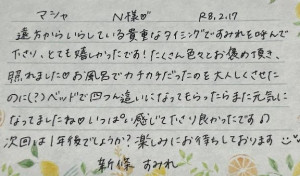 マシャ N様♡ R8.2.17
遠方からいらしている貴重なタイミングですみれを呼んで
下さり、とても嬉しかったです!たくさん色々とお褒め頂き、
照れました♡お風呂でカチカチだったのを大人しくさせた
のに(?)ベッドで四つん這いになってもらったらまた元気に
なってましたね♡いっぱい感じて下さり良かったです♪
次回は1年後でしょうか?楽しみにお待ちしております
新條 すみれ